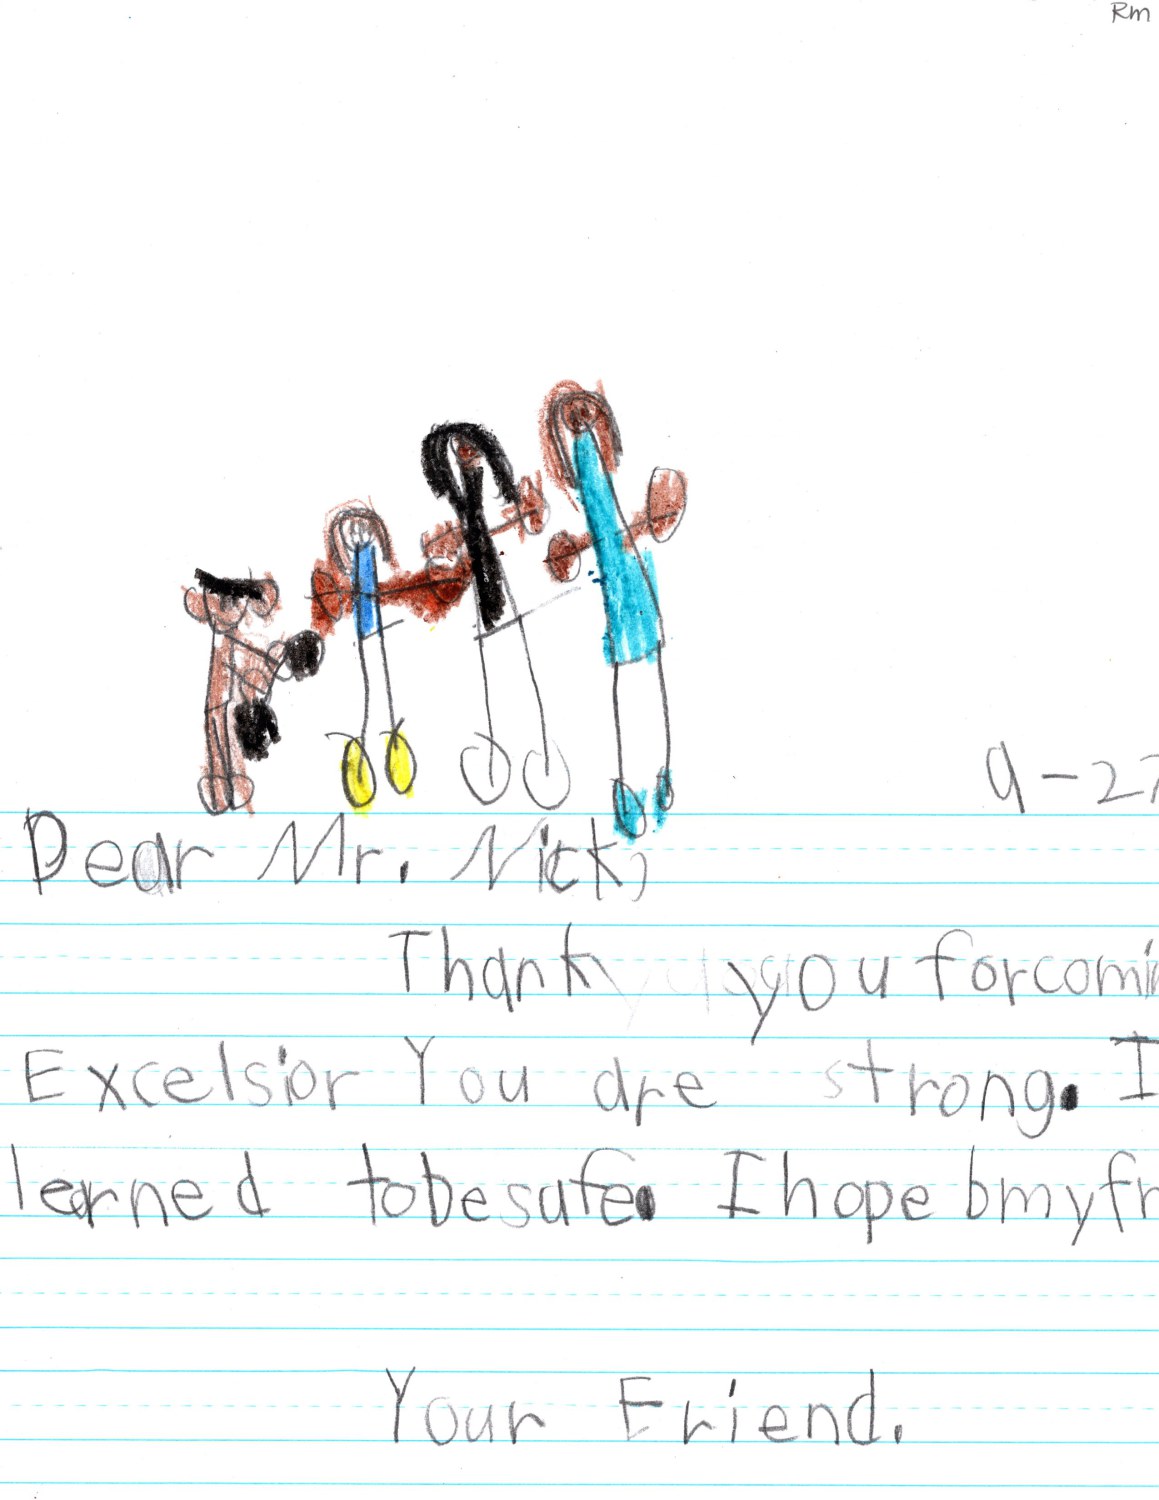 Rm
9-27
Dear Mr. Nick,
Thank you forcomin
Excelsior You are strong. I
learned tobesafe. I hope bmyfr
Your Friend.